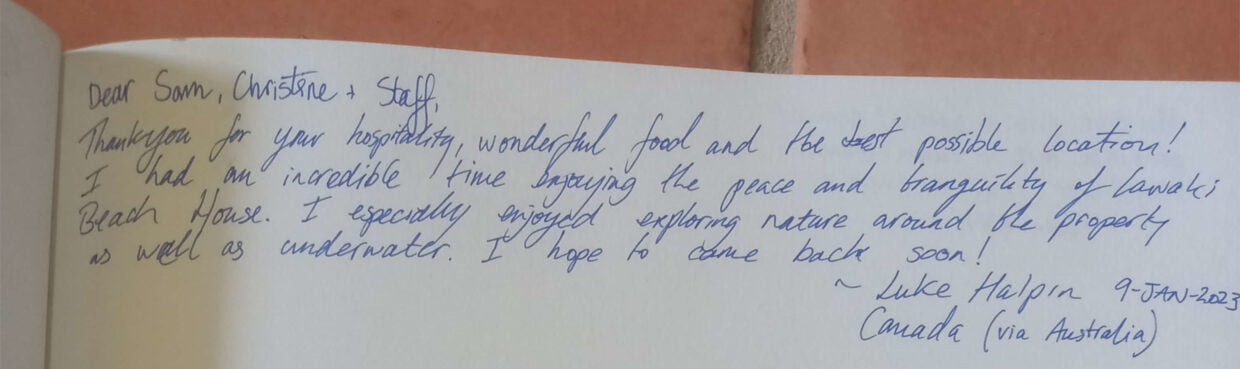 Dear Sam, Christine + Staff,
Thankyou for your hospitality, wonderful food and the best possible location!
I had an incredible time enjoying the peace and tranquility of Lawaki
Beach House. I especially enjoyed exploring nature around the property
as well as underwater. I hope to come back soon!
~ Luke Halpin 9-JAN-2023
Canada (via Australia)